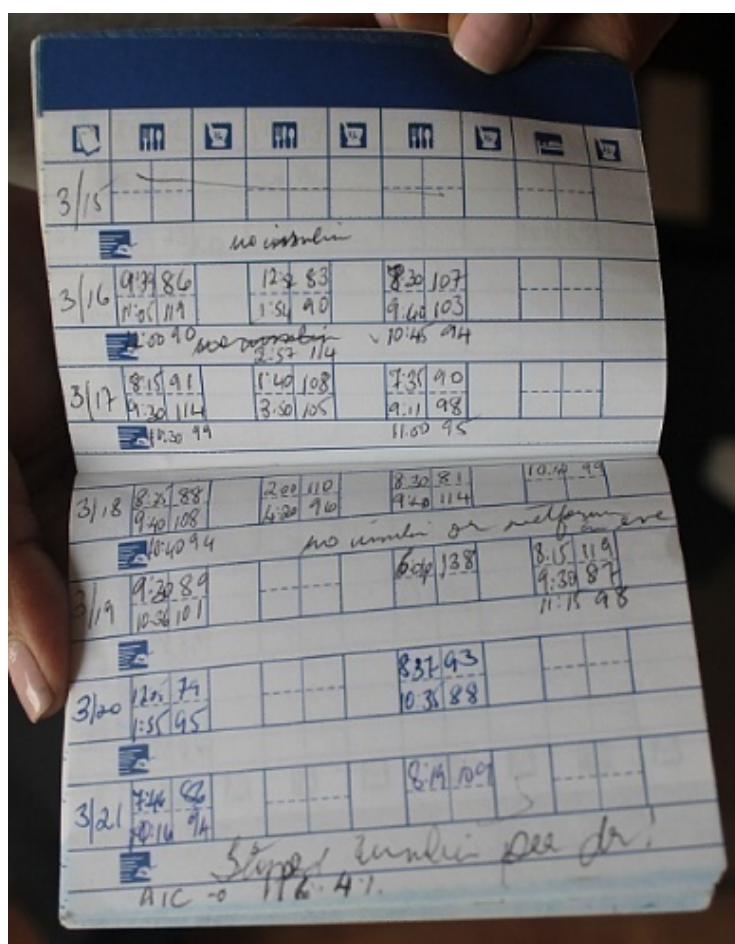 3/15
no insulin
3/16 9:79 86 12:2 83 8:30 107
11:05 119 1:54 90 9:40 103
11:00 90 no insulin 2:57 114 10:45 94
3/17 8:15 91 1:40 108 7:35 90
9:30 114 3:50 105 9:11 98
10:30 99 11:00 95
3/18 8:25 88 2:00 110 8:30 81 10:40 99
9:40 108 4:20 96 9:40 114
10:40 94 no insulin or metformin eve
3/19 9:30 89 138 8:15 119
10:36 101 9:30 87
11:15 98
3/20 79 8:37 93
1:55 95 10:35 88
3/21 7:46 86 8:19 109
10:16 94
Stopped insulin per dr!
A1C 4%